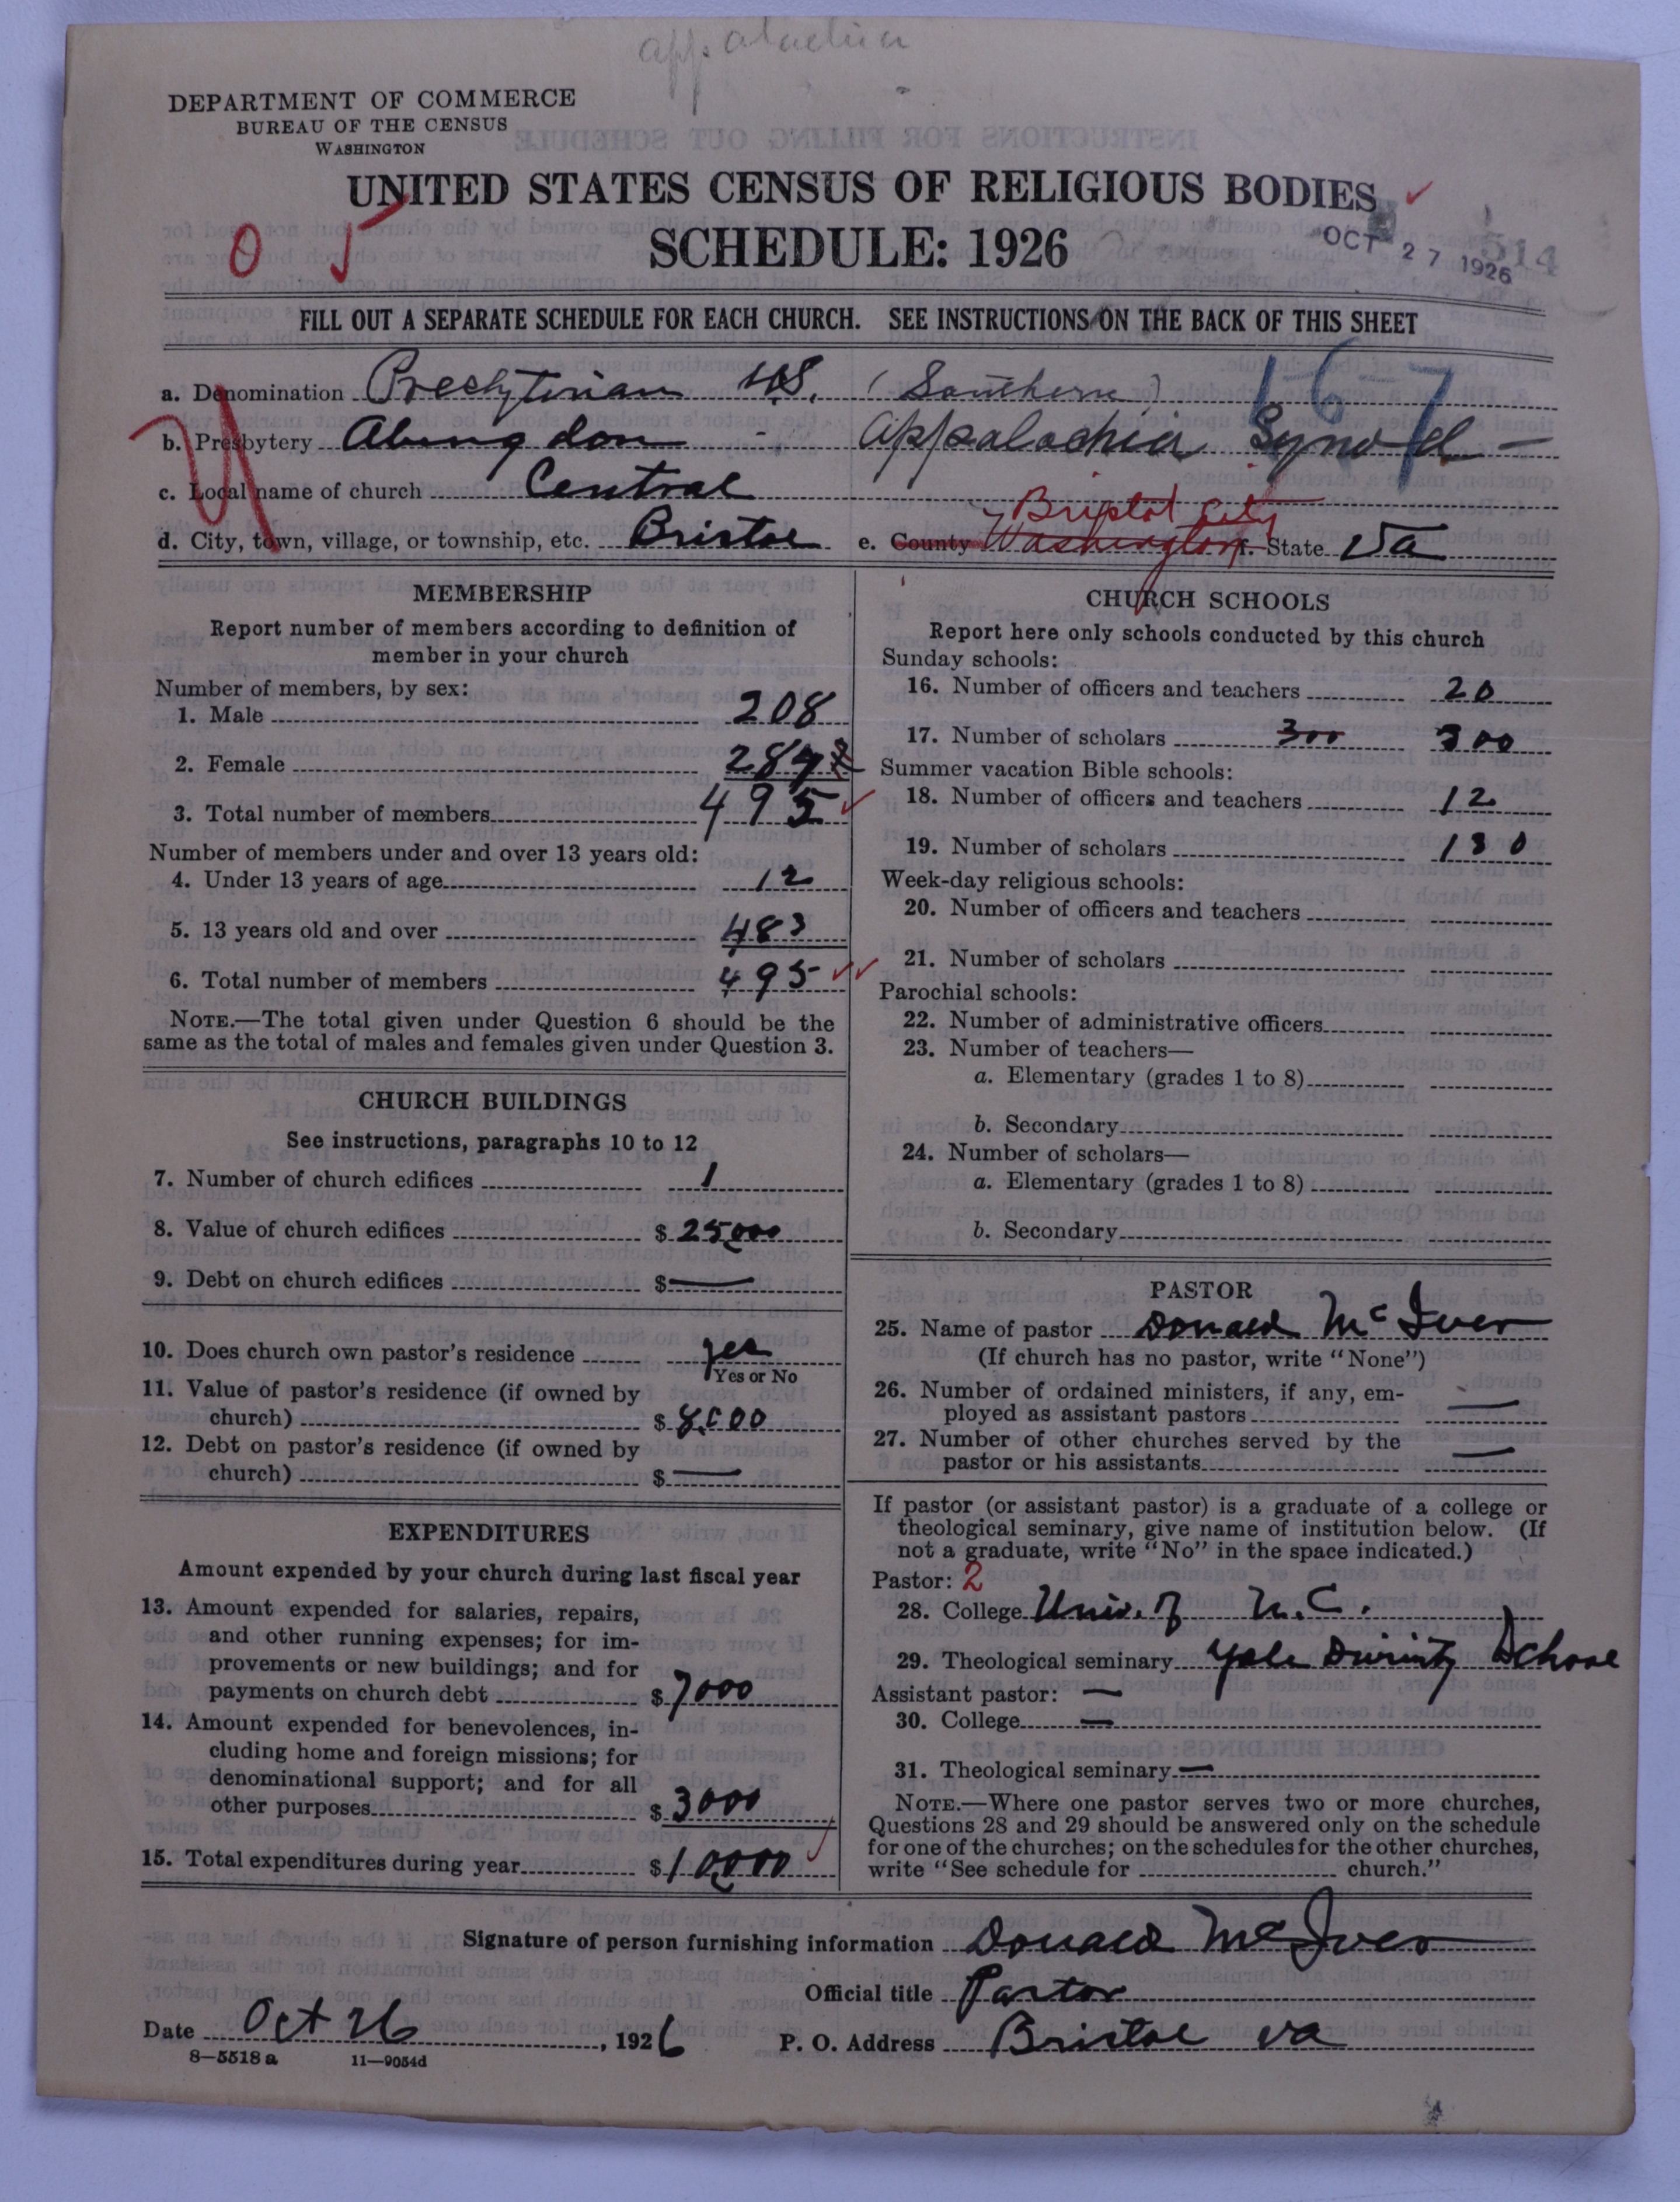 Appalachia
DEPARTMENT OF COMMERCE
BUREAU OF THE CENSUS
WASHINGTON
UNITED STATES CENSUS OF RELIGIOUS BODIES
SCHEDULE: 1926
0 5
OCT 27 1926
514
FILL OUT A SEPARATE SCHEDULE FOR EACH CHURCH. SEE INSTRUCTIONS ON THE BACK OF THIS SHEET
16-7
a. Denomination Presbyterian U.S. (Southern)
b. Presbytery Abingdon - Appalachia Synod -
c. Local name of church Central
Bristol City
d. City, town, village, or township, etc. Bristol e. County Washington f. State Va
MEMBERSHIP
Report number of members according to definition of
member in your church
Number of members, by sex:
1. Male 208
2. Female 287
3. Total number of members 495
Number of members under and over 13 years old:
4. Under 13 years of age 12
5. 13 years old and over 483
6. Total number of members 495
NOTE.—The total given under Question 6 should be the
same as the total of males and females given under Question 3.
CHURCH BUILDINGS
See instructions, paragraphs 10 to 12
7. Number of church edifices 1
8. Value of church edifices $ 25,000
9. Debt on church edifices $ —
10. Does church own pastor's residence yes
Yes or No
11. Value of pastor's residence (if owned by
church) $ 8,000
12. Debt on pastor's residence (if owned by
church) $ —
EXPENDITURES
Amount expended by your church during last fiscal year
13. Amount expended for salaries, repairs,
and other running expenses; for im-
provements or new buildings; and for
payments on church debt $ 7000
14. Amount expended for benevolences, in-
cluding home and foreign missions; for
denominational support; and for all
other purposes $ 3000
15. Total expenditures during year $ 10,000
CHURCH SCHOOLS
Report here only schools conducted by this church
Sunday schools:
16. Number of officers and teachers 20
17. Number of scholars 300 300
Summer vacation Bible schools:
18. Number of officers and teachers 12
19. Number of scholars 130
Week-day religious schools:
20. Number of officers and teachers
21. Number of scholars
Parochial schools:
22. Number of administrative officers
23. Number of teachers—
a. Elementary (grades 1 to 8)
b. Secondary
24. Number of scholars—
a. Elementary (grades 1 to 8)
b. Secondary
PASTOR
25. Name of pastor Donald McIver
(If church has no pastor, write "None")
26. Number of ordained ministers, if any, em-
ployed as assistant pastors —
27. Number of other churches served by the
pastor or his assistants —
If pastor (or assistant pastor) is a graduate of a college or
theological seminary, give name of institution below. (If
not a graduate, write "No" in the space indicated.)
Pastor: 2
28. College Univ. of N.C.
29. Theological seminary Yale Divinity School
Assistant pastor: —
30. College —
31. Theological seminary —
NOTE.—Where one pastor serves two or more churches,
Questions 28 and 29 should be answered only on the schedule
for one of the churches; on the schedules for the other churches,
write "See schedule for church."
Signature of person furnishing information Donald McIver
Official title Pastor
Date Oct 26, 1926 P. O. Address Bristol Va
8—5518 a 11—9054d